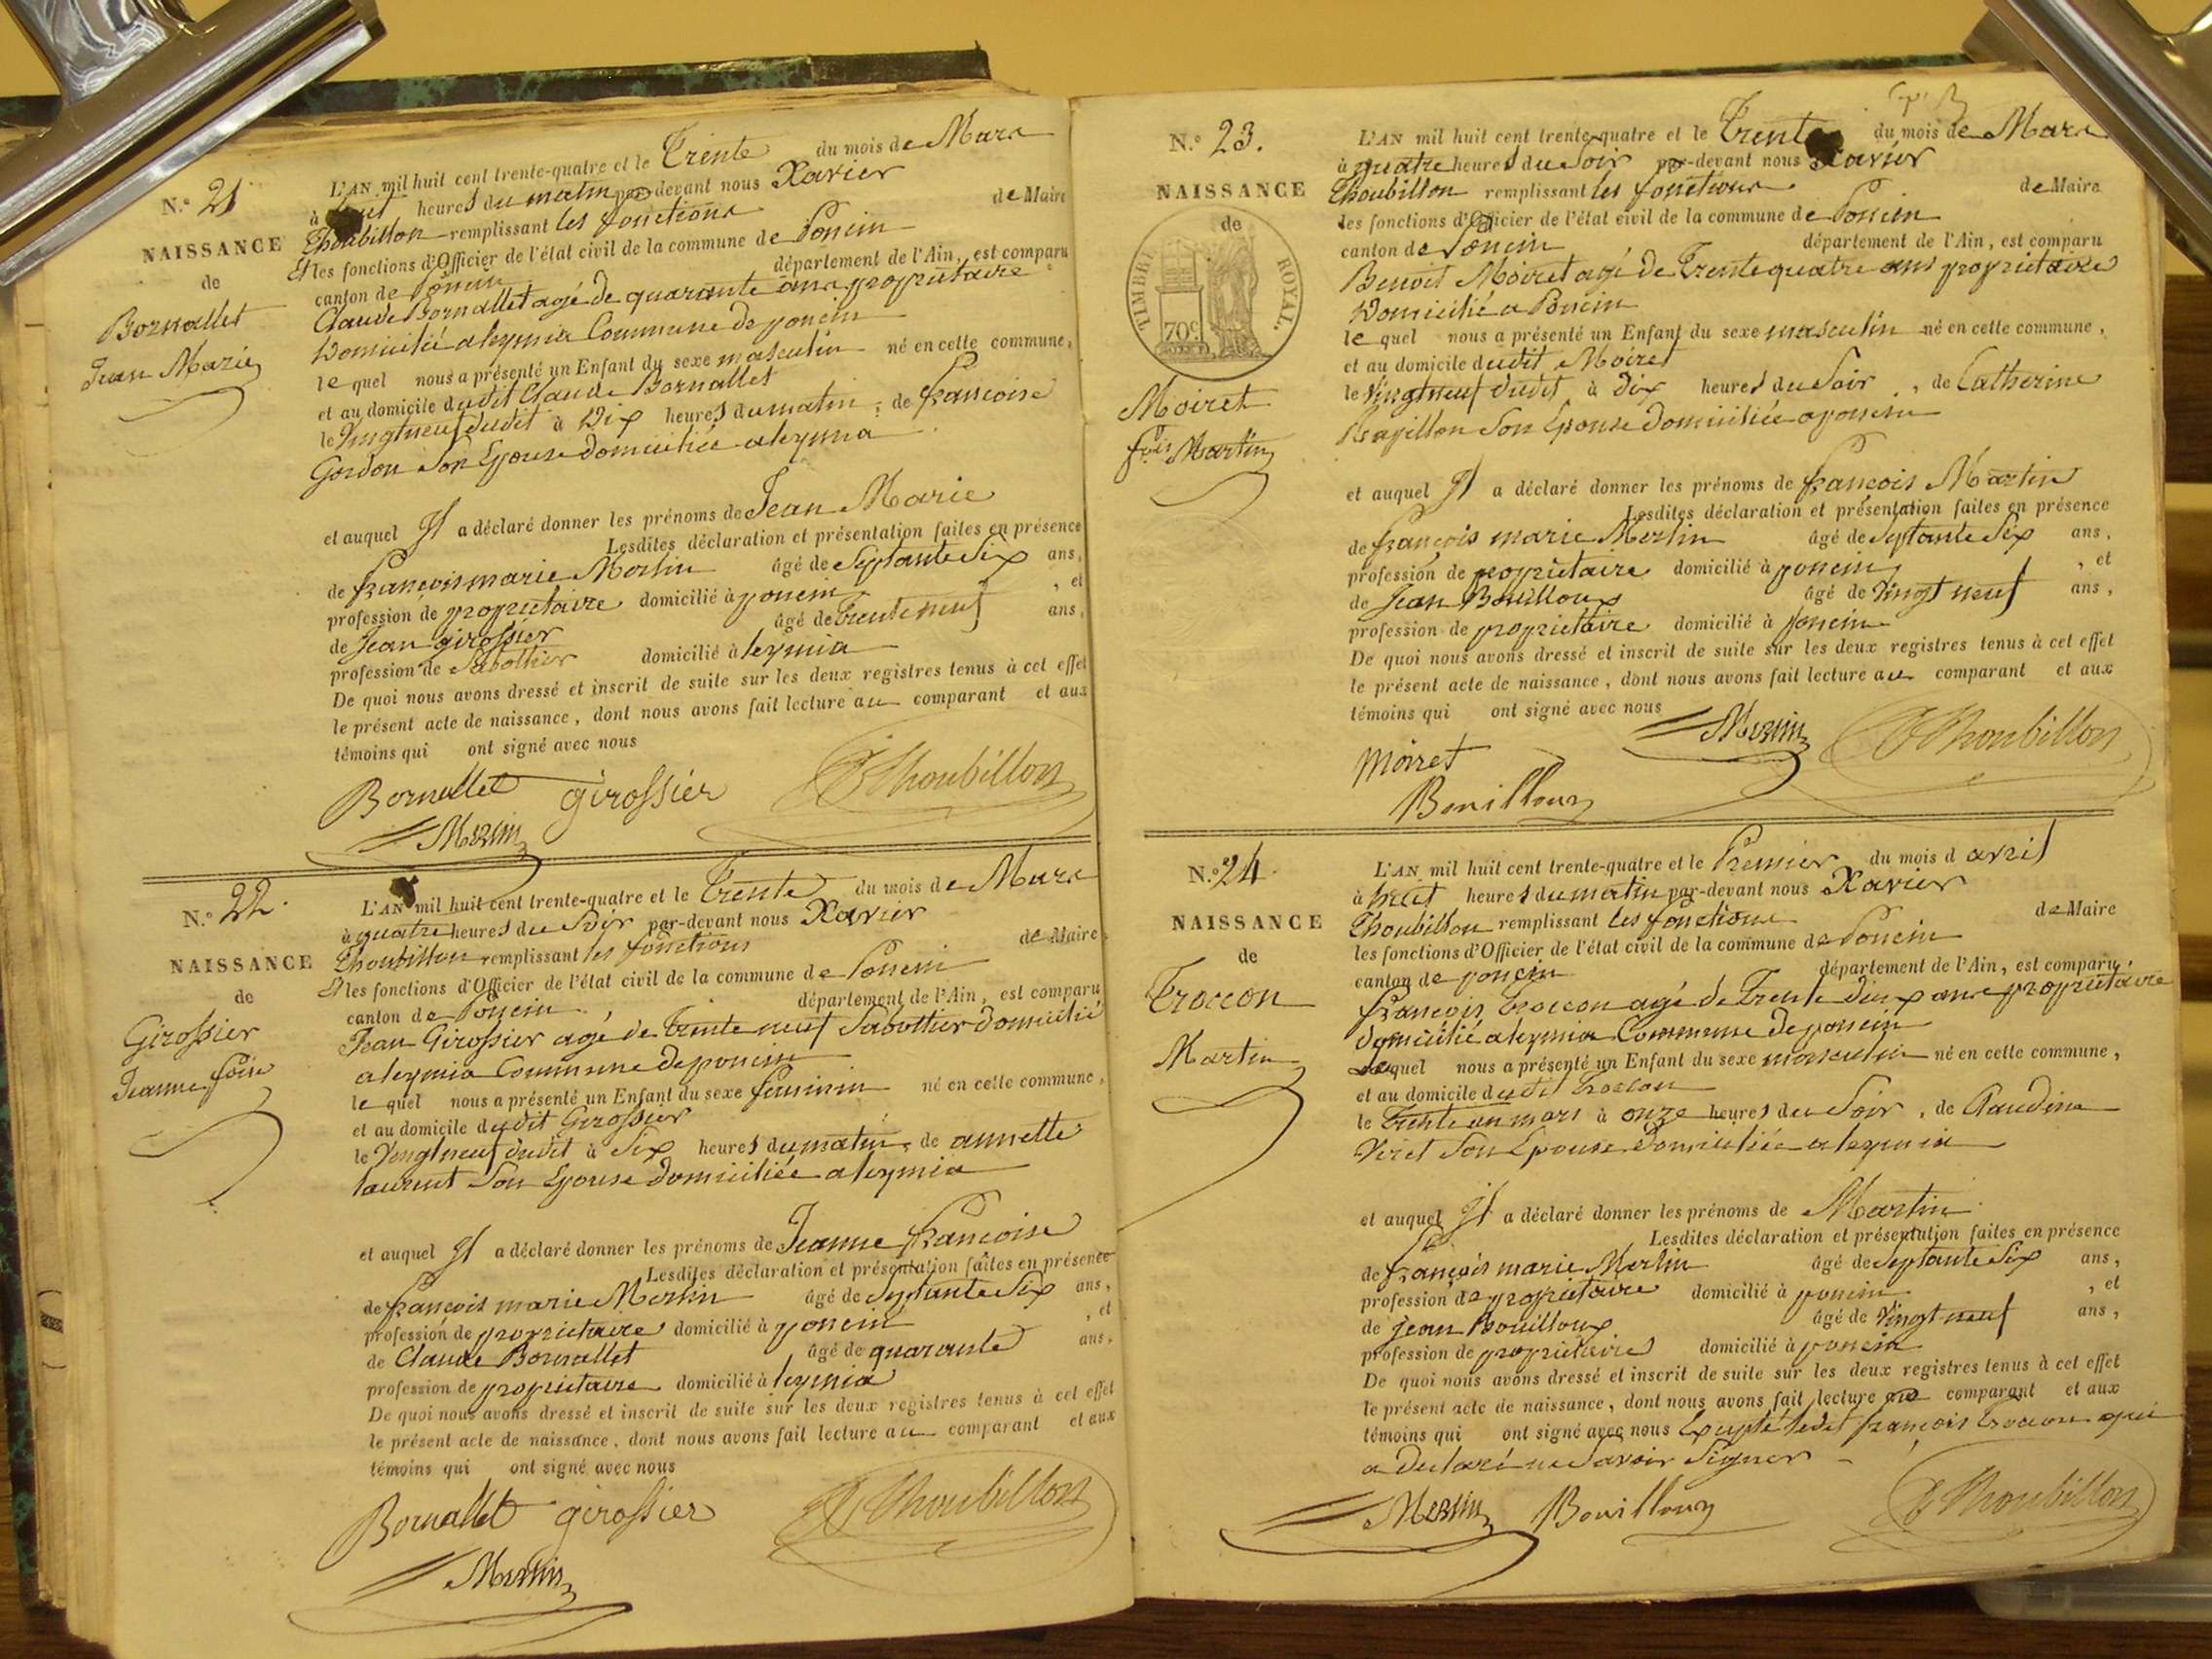 N.o 21
NAISSANCE
de
Bornallet
Jean Marie
L'AN mil huit cent trente-quatre et le Trente du mois de Mars
à huit heures du matin par-devant nous Xavier
Thoubillon remplissant les fonctions de Maire
Et les fonctions d'Officier de l'état civil de la commune de Poncin
canton de Poncin département de l'Ain, est comparu
Claude Bornallet agé de quarante ans propriétaire
Domicilié a leymia Commune de poncin
le quel nous a présenté un Enfant du sexe masculin né en cette commune,
et au domicile dudit Claude Bornallet
le Vingtneuf dudit à Dix heures du matin, de françoise
Gordon Son Epouse domiciliée a leymia
et auquel Il a déclaré donner les prénoms de Jean Marie
Lesdites déclaration et présentation faites en présence
de françois marie Merlin âgé de Septante Six ans,
profession de propriétaire domicilié à poncin, et
de Jean girossier âgé de trente neuf ans,
profession de Sabottier domicilié à leymia
De quoi nous avons dressé et inscrit de suite sur les deux registres tenus à cet effet
le présent acte de naissance, dont nous avons fait lecture au comparant et aux
témoins qui ont signé avec nous
Bornallet girossier Thoubillon
Merlin
N.o 22.
NAISSANCE
de
Girossier
Jeanne foise
L'AN mil huit cent trente-quatre et le Trente du mois de Mars
à quatre heures du Soir par-devant nous Xavier
Thoubillon remplissant les fonctions de Maire
Et les fonctions d'Officier de l'état civil de la commune de Poncin
canton de Poncin département de l'Ain, est comparu
Jean Girossier agé de trente neuf Sabottier domicilié
a leymia Commune de poncin
le quel nous a présenté un Enfant du sexe feminin né en cette commune,
et au domicile dudit Girossier
le Vingtneuf dudit à Six heures du matin, de annette
laurent Son Epouse domiciliée a leymia
et auquel Il a déclaré donner les prénoms de Jeanne françoise
Lesdites déclaration et présentation faites en présence
de françois marie Merlin âgé de Septante Six ans,
profession de propriétaire domicilié à poncin, et
de Claude Bornallet âgé de quarante ans,
profession de propriétaire domicilié à leymia
De quoi nous avons dressé et inscrit de suite sur les deux registres tenus à cet effet
le présent acte de naissance, dont nous avons fait lecture au comparant et aux
témoins qui ont signé avec nous
Bornallet girossier Thoubillon
Merlin
N.o 23.
NAISSANCE
de
TIMBRE ROYAL.
70c
Moiret
fois Martin
L'AN mil huit cent trente-quatre et le Trente du mois de Mars
à quatre heures du Soir par-devant nous Xavier
Thoubillon remplissant les fonctions de Maire
les fonctions d'Officier de l'état civil de la commune de Poncin
canton de Poncin département de l'Ain, est comparu
Benoit Moiret agé de Trente quatre ans propriétaire
Domicilié a Poncin
le quel nous a présenté un Enfant du sexe masculin né en cette commune,
et au domicile dudit Moiret
le Vingtneuf dudit à dix heures du Soir, de Catherine
Papillon Son Epouse domiciliée a poncin
et auquel Il a déclaré donner les prénoms de françois Martin
Lesdites déclaration et présentation faites en présence
de françois marie Merlin âgé de Septante Six ans,
profession de propriétaire domicilié à poncin, et
de Jean Bouilloux âgé de Vingt neuf ans,
profession de propriétaire domicilié à poncin
De quoi nous avons dressé et inscrit de suite sur les deux registres tenus à cet effet
le présent acte de naissance, dont nous avons fait lecture au comparant et aux
témoins qui ont signé avec nous Merlin Thoubillon
moiret
Bouilloux
N.o 24.
NAISSANCE
de
Troccon
Martin
L'AN mil huit cent trente-quatre et le Premier du mois d avril
à huit heures du matin par-devant nous Xavier
Thoubillon remplissant les fonctions de Maire
les fonctions d'Officier de l'état civil de la commune de Poncin
canton de poncin département de l'Ain, est comparu,
françois Troccon agé de Trente deux ans propriétaire
domicilié a leymia Commune de poncin
lequel nous a présenté un Enfant du sexe masculin né en cette commune,
et au domicile dudit Troccon
le Trente un mars à onze heures du Soir, de Claudine
Veret Son Epouse domiciliée a leymia
et auquel Il a déclaré donner les prénoms de Martin
Lesdites déclaration et présentation faites en présence
de françois marie Merlin âgé de Septante Six ans,
profession de propriétaire domicilié à poncin, et
de jean Bouilloux âgé de Vingt neuf ans,
profession de propriétaire domicilié à poncin
De quoi nous avons dressé et inscrit de suite sur les deux registres tenus à cet effet
le présent acte de naissance, dont nous avons fait lecture au comparant et aux
témoins qui ont signé avec nous Excepté ledit françois Troccon qui
a declaré ne Savoir Signer
Merlin Bouilloux Thoubillon